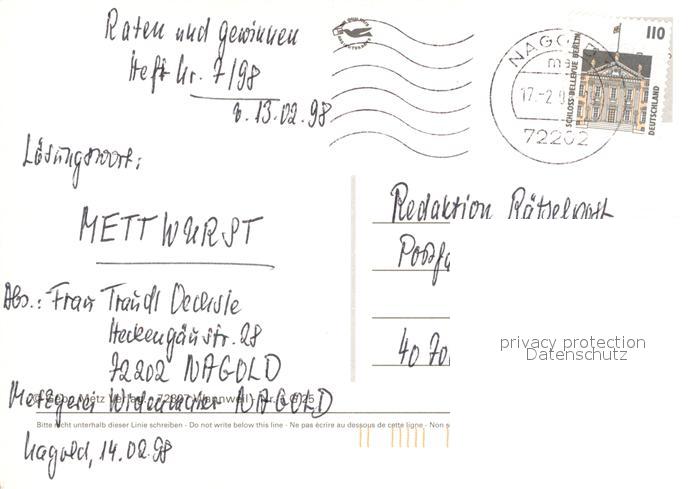 Raten und gewinnen
Heft Nr. 7/98
v. 13.02.98
Lösungswort:
METTWURST
Abs.: Frau Traudl Dechsle
Heckengäustr. 28
72202 NAGOLD
Metzgerei NAGOLD
Nagold, 14.02.98
Redaktion Rätselpost
Postfa
40 70
NAGOLD
17.-2.9
72202
110
SCHLOSS BELLEVUE BERLIN
DEUTSCHLAND
© Metz Verlag - 72827 Wannweil - Nr. 25
Bitte nicht unterhalb dieser Linie schreiben - Do not write below this line - Ne pas écrire au dessous de cette ligne - Non s
privacy protection
Datenschutz